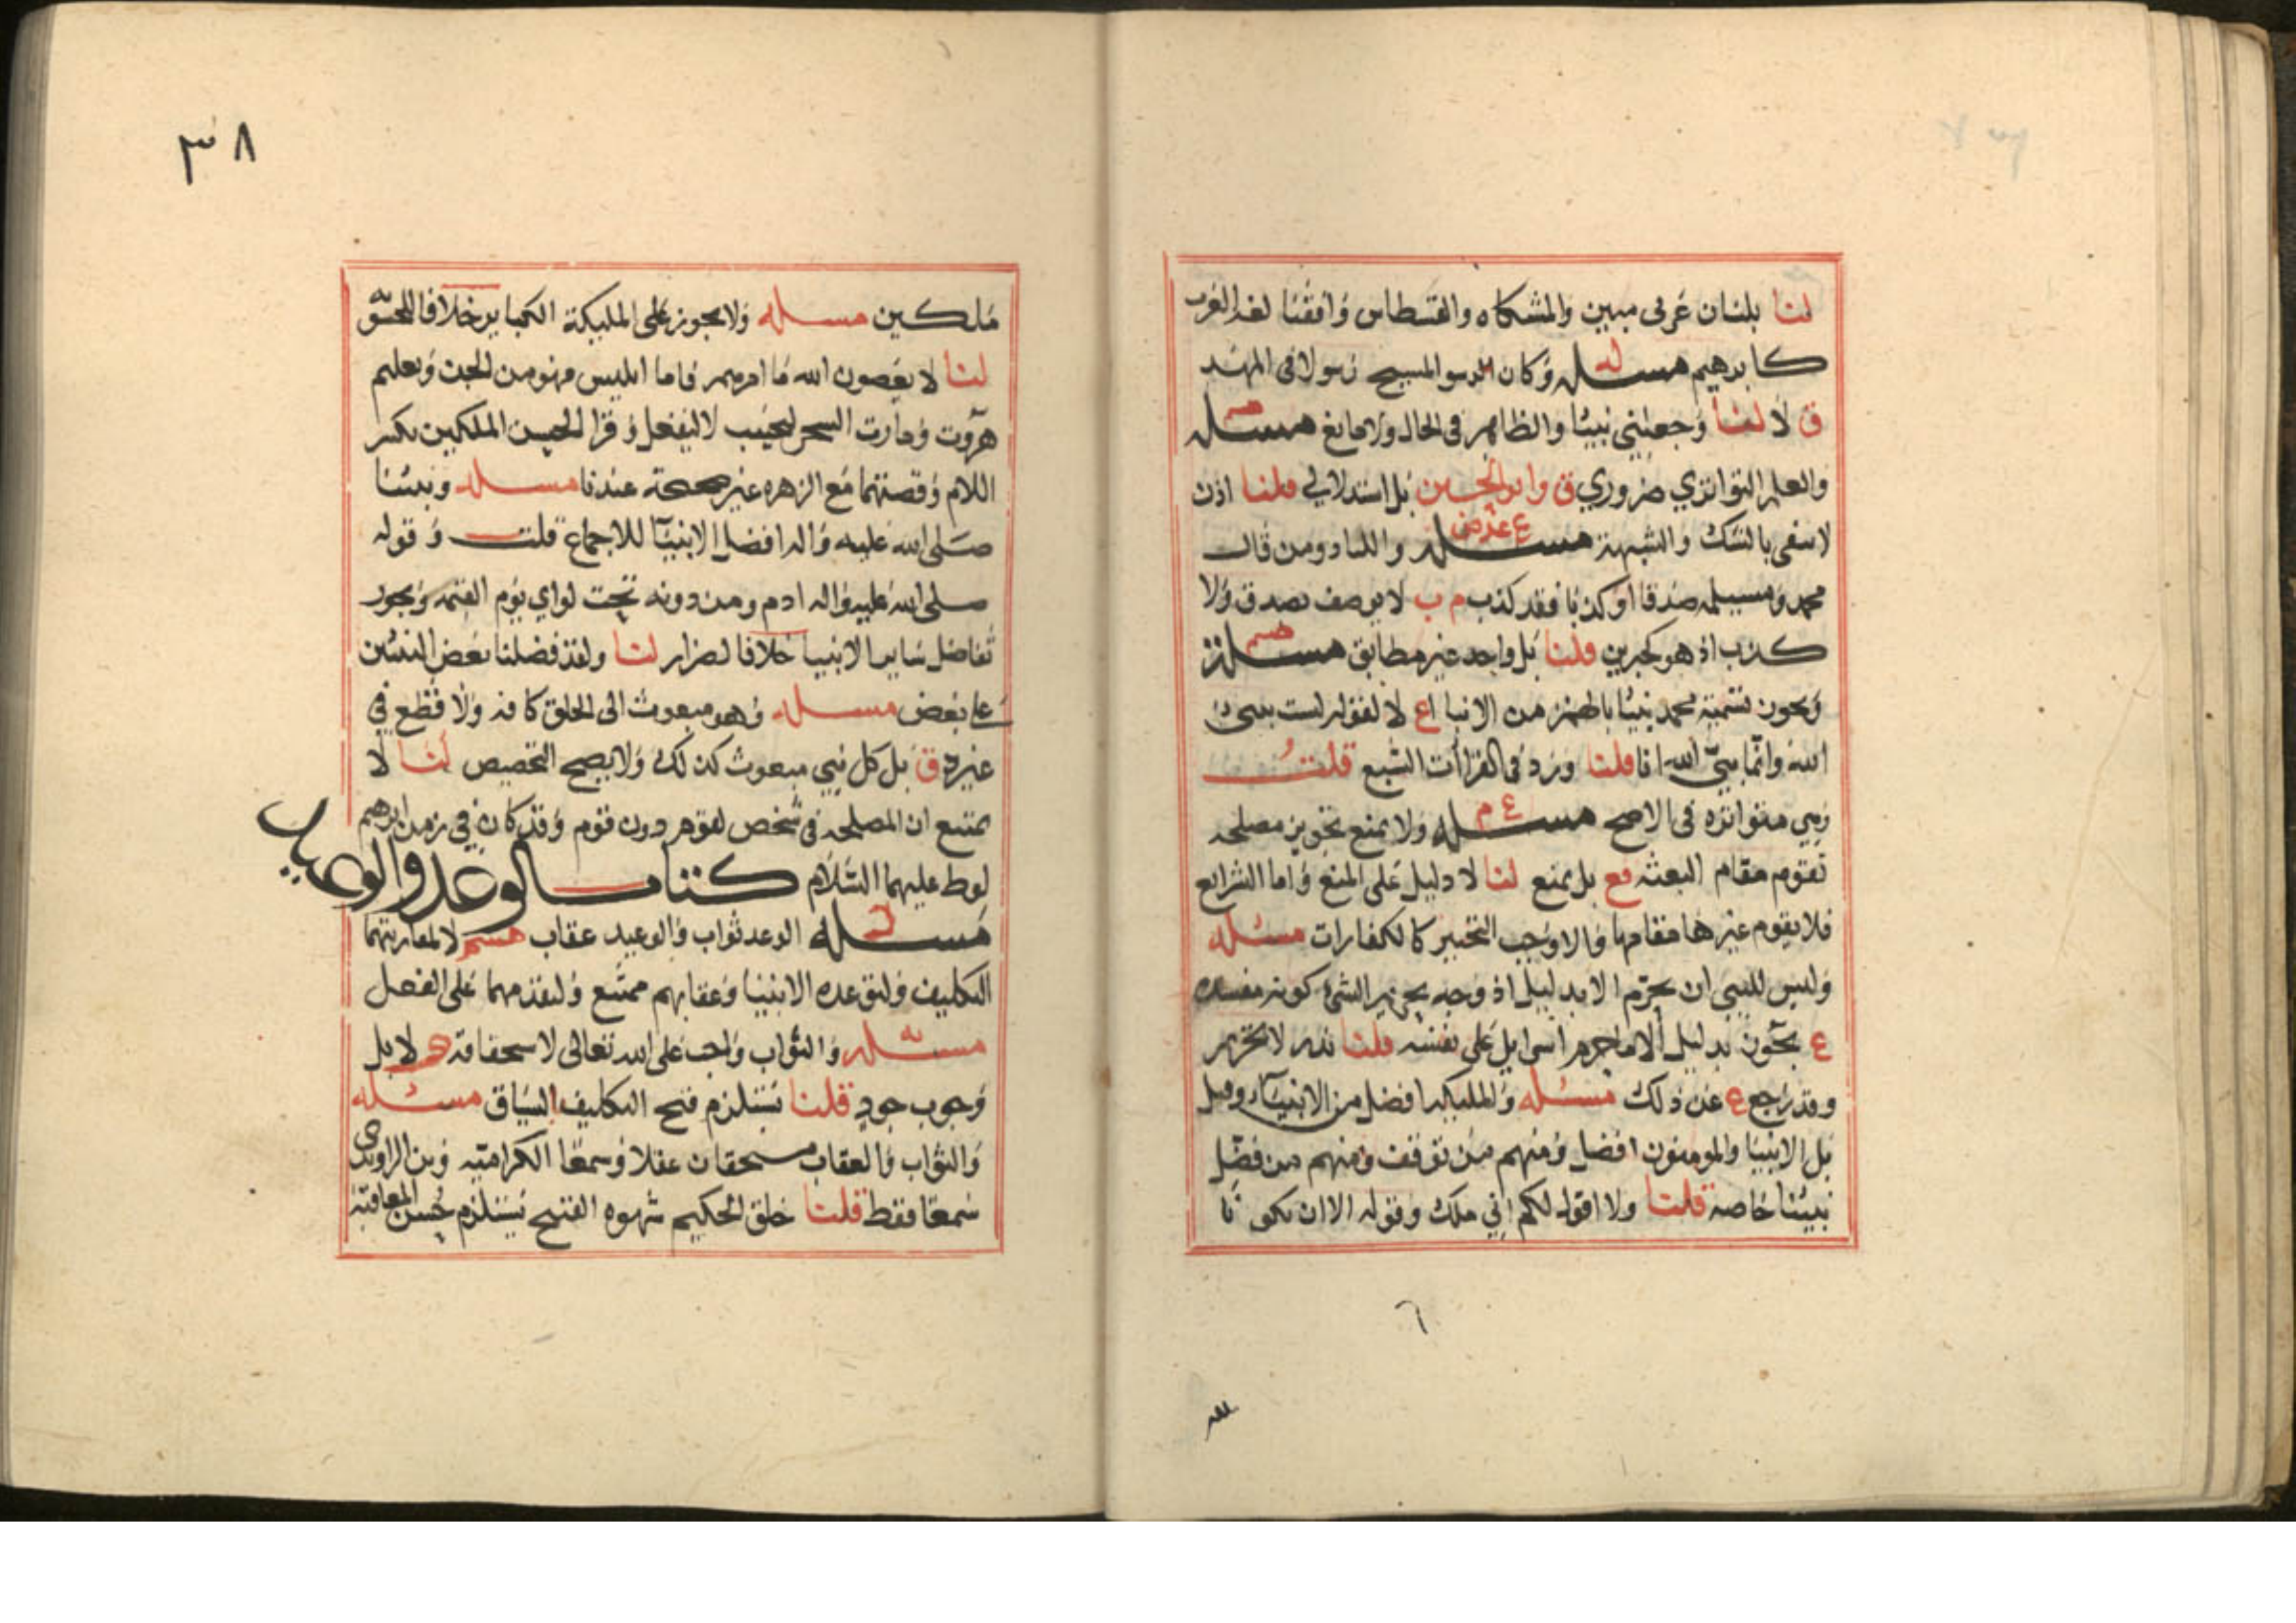 لنا بلسان عربي مبين والمشكاه والقسطاس وافقنا لغه العرب
كابرهيم مسله وكان المسيح رسولا في المهد
ق لا لنا وجعلني نبيئا والظاهر في الحال ولا مانع مسله
والعلم التواتري ضروري ق وابو الحسين بل استدلالي قلنا اذن
لانتفى بالشك والشبهة مسله ع عرض ومن قال
محمد ومسيلمه صدقا او كذبا فقد كذب م ب لا يوصف بصدق ولا
كذب اذ هو كخبرين قلنا بل واحد غير مطابق مسله
ويجوز تسمية محمد نبيئا بالهمز من الانبا ع لا لقوله لست بنبئ
الله وانما نبيّ الله انا قلنا ورد في القراات السبع قلت
وهي متواتره في الاصح مسله ع م ولا يمنع تجويز مصلحه
تقوم مقام البعثه قع بل يمنع لنا لا دليل على المنع واما الشرايع
فلا يقوم غيرها مقامها والا وجب التخيير كالكفارات مسئله
وليس للنبي ان يحرّم الا بدليل اذ وجه تحريم الشئ كونه مفسده
ع يجوز بدليل الا ما حرم اسرايل على نفسه قلنا نذر لا تحريم
وقد رجع ع عن ذلك مسئله والمليكه افضل من الانبيآ وقيل
بل الانبيا والمومنون افضل ومنهم من توقف ومنهم من فضّل
نبيئنا خاصه قلنا ولا اقول لكم اني ملك وقوله الا ان تكونا
٣٨
ملكين مسله ولا يجوز على المليكة الكباير خلافا للحشويه
لنا لا يعصون الله ما امرهم فاما ابليس فهو من الجن وتعليم
هروت ومارت السحر ليجتنب لا ليفعل وقرا الحسن الملكين بكسر
اللام وقصتهما مع الزهره غير صحيحة عندنا مسله ونبيئنا
صلى الله عليه واله افضل الانبيآ للاجماع قلت وقوله
صلى الله عليه واله ادم ومن دونه تحت لواي يوم القيمه ويجوز
تفاضل ساير الانبيا خلافا لضرار لنا ولقد فضلنا بعض النبيئين
على بعض مسله وهو مبعوث الى الخلق كافه ولا قطع في
غيره ق بل كل نبي مبعوث كذلك ولا يصح التخصيص لنا لا
يمتنع ان المصلحه في شخص لقوم دون قوم وقد كان في زمن ابرهيم
لوط عليهما السلام كتاب الوعد والوعيد
مسله الوعد ثواب والوعيد عقاب هشم لا لمقارنتهما
التكليف ولتوعده الانبيا وعقابهم ممتنع ولتقدمهما على الفعل
مسئله والثواب واجب على الله تعالى لاستحقاقه لا بل
وجوب جود قلنا يستلزم قبح التكليف السياق مسئله
والثواب والعقاب مستحقان عقلا وسمعا الكراميه وبن الراوندى
سمعا فقط قلنا خلق الحكيم شهوه القبيح يستلزم حسن المعاقبه